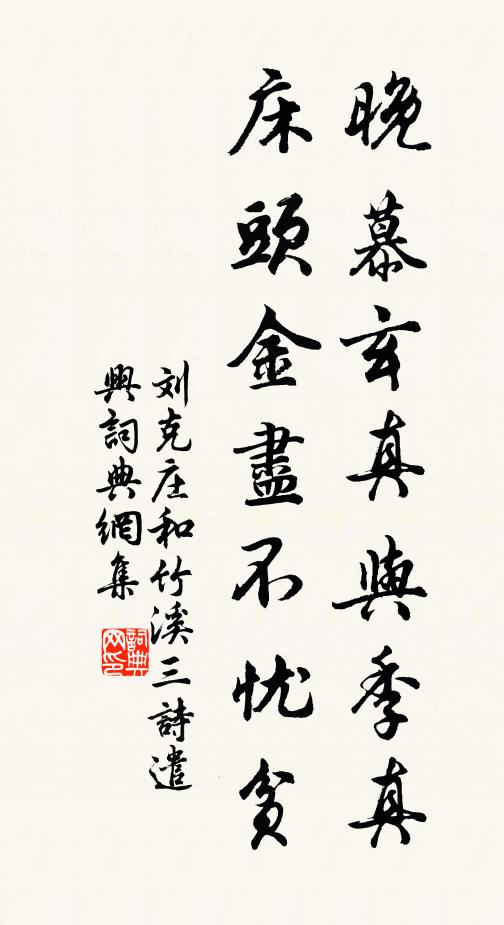 晚慕玄真與季真
床頭金盡不忧貧
刘克庄和竹溪三詩遣
興詞典網集
詞典
网印